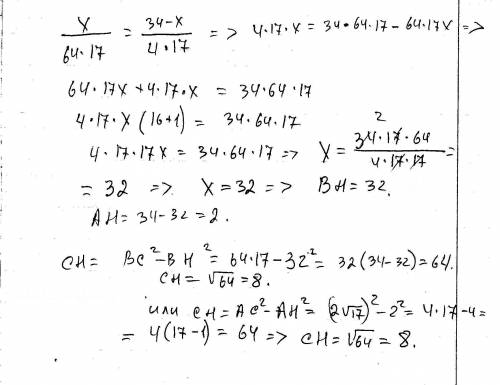 x/(64·17) = (34-x)/(4·17) => 4·17·x = 34·64·17 - 64·17x =>
64·17x + 4·17·x = 34·64·17
4·17·x(16+1) = 34·64·17
4·17·17x = 34·64·17 => x = (34·17·64)/(4·17·17) = 2
= 32 => x = 32 => BH = 32.
AH = 34-32 = 2.
CH = BC² - BH² = 64·17 - 32² = 32(34-32) = 64.
CH = √64 = 8.
или CH = AC² - AH² = (2√17)² - 2² = 4·17 - 4 =
= 4(17-1) = 64 => CH = √64 = 8.